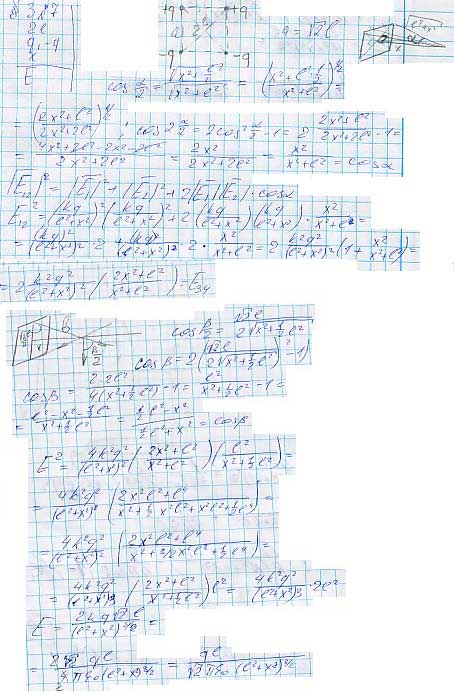 3.17
2l
q, -q
x
E
+q +q
a 2l
-q -q
a = √2 l
cos α/2 = √(x² + l²/2) / √(x² + l²) = ((x² + l²·½)/(x² + l²))^½
= ((2x² + l²)/(2x² + 2l²))^½ ; cos 2 α/2 = 2cos² α/2 - 1 = 2 (2x² + l²)/(2x² + 2l²) - 1 =
= (4x² + 2l² - 2x² - 2l²)/(2x² + 2l²) = 2x²/(2x² + 2l²) = x²/(x² + l²) = cos α
|E₁₂|² = |E₁|² + |E₂|² + 2|E₁||E₂| · cos α
E₁₂² = (kq/(l² + x²))² + (kq/(l² + x²))² + 2 (kq/(l² + x²)) (kq/(l² + x²)) · x²/(x² + l²) =
= (kq)²/(l² + x²)² · 2 + (kq)²/(l² + x²)² · 2 · x²/(x² + l²) = 2 k²q²/(l² + x²)² (1 + x²/(x² + l²)) =
= 2 k²q²/(l² + x²)² ((2x² + l²)/(x² + l²)) = E₃₄
cos β/2 = √2 l / (2√(x² + ½ l²))
cos β = 2 (√2 l / (2√(x² + ½ l²)))² - 1)
cos β = 2·2l² / (4(x² + ½ l²)) - 1 = l²/(x² + ½ l²) - 1 =
= (l² - x² - ½ l²)/(x² + ½ l²) = (½ l² - x²)/(½ l² + x²) = cos β
E² = 4k²q²/(l² + x²)² ((2x² + l²)/(x² + l²)) (l²/(x² + ½ l²)) =
= 4k²q²/(l² + x²)² ((2x²l² + l⁴)/(x⁴ + ½ x²l² + x²l² + ½ l⁴)) =
= 4k²q²/(l² + x²)² ((2x²l² + l⁴)/(x⁴ + 3/2 x²l² + ½ l⁴)) =
= 4k²q²/(l² + x²)³ ((2x² + l²)/(x² + ½ l²)) l² = 4k²q²/(l² + x²)³ · 2l²
E = 2kq√2 l/(l² + x²)^3/2 =
= 2√2 ql/(4πε₀(l² + x²)^3/2) = ql/(√2 πε₀ (l² + x²)^3/2)